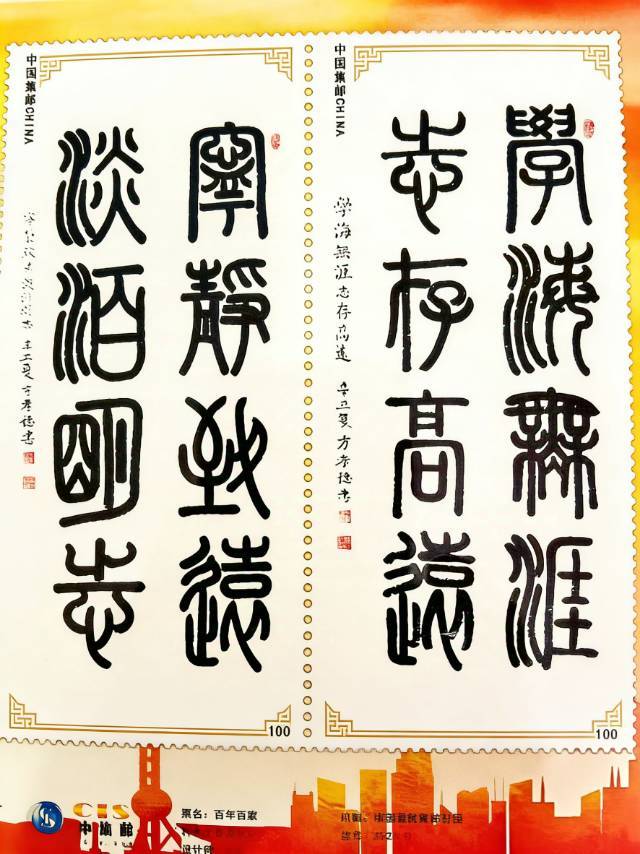 中国集邮CHINA
學海無涯
志存高遠
學海無涯志存高遠 辛丑夏方孝德書
100
中国集邮CHINA
寧靜致遠
淡泊明志
辛丑夏方孝德書
100
CIS
中
邮
票名：百年百家
设计